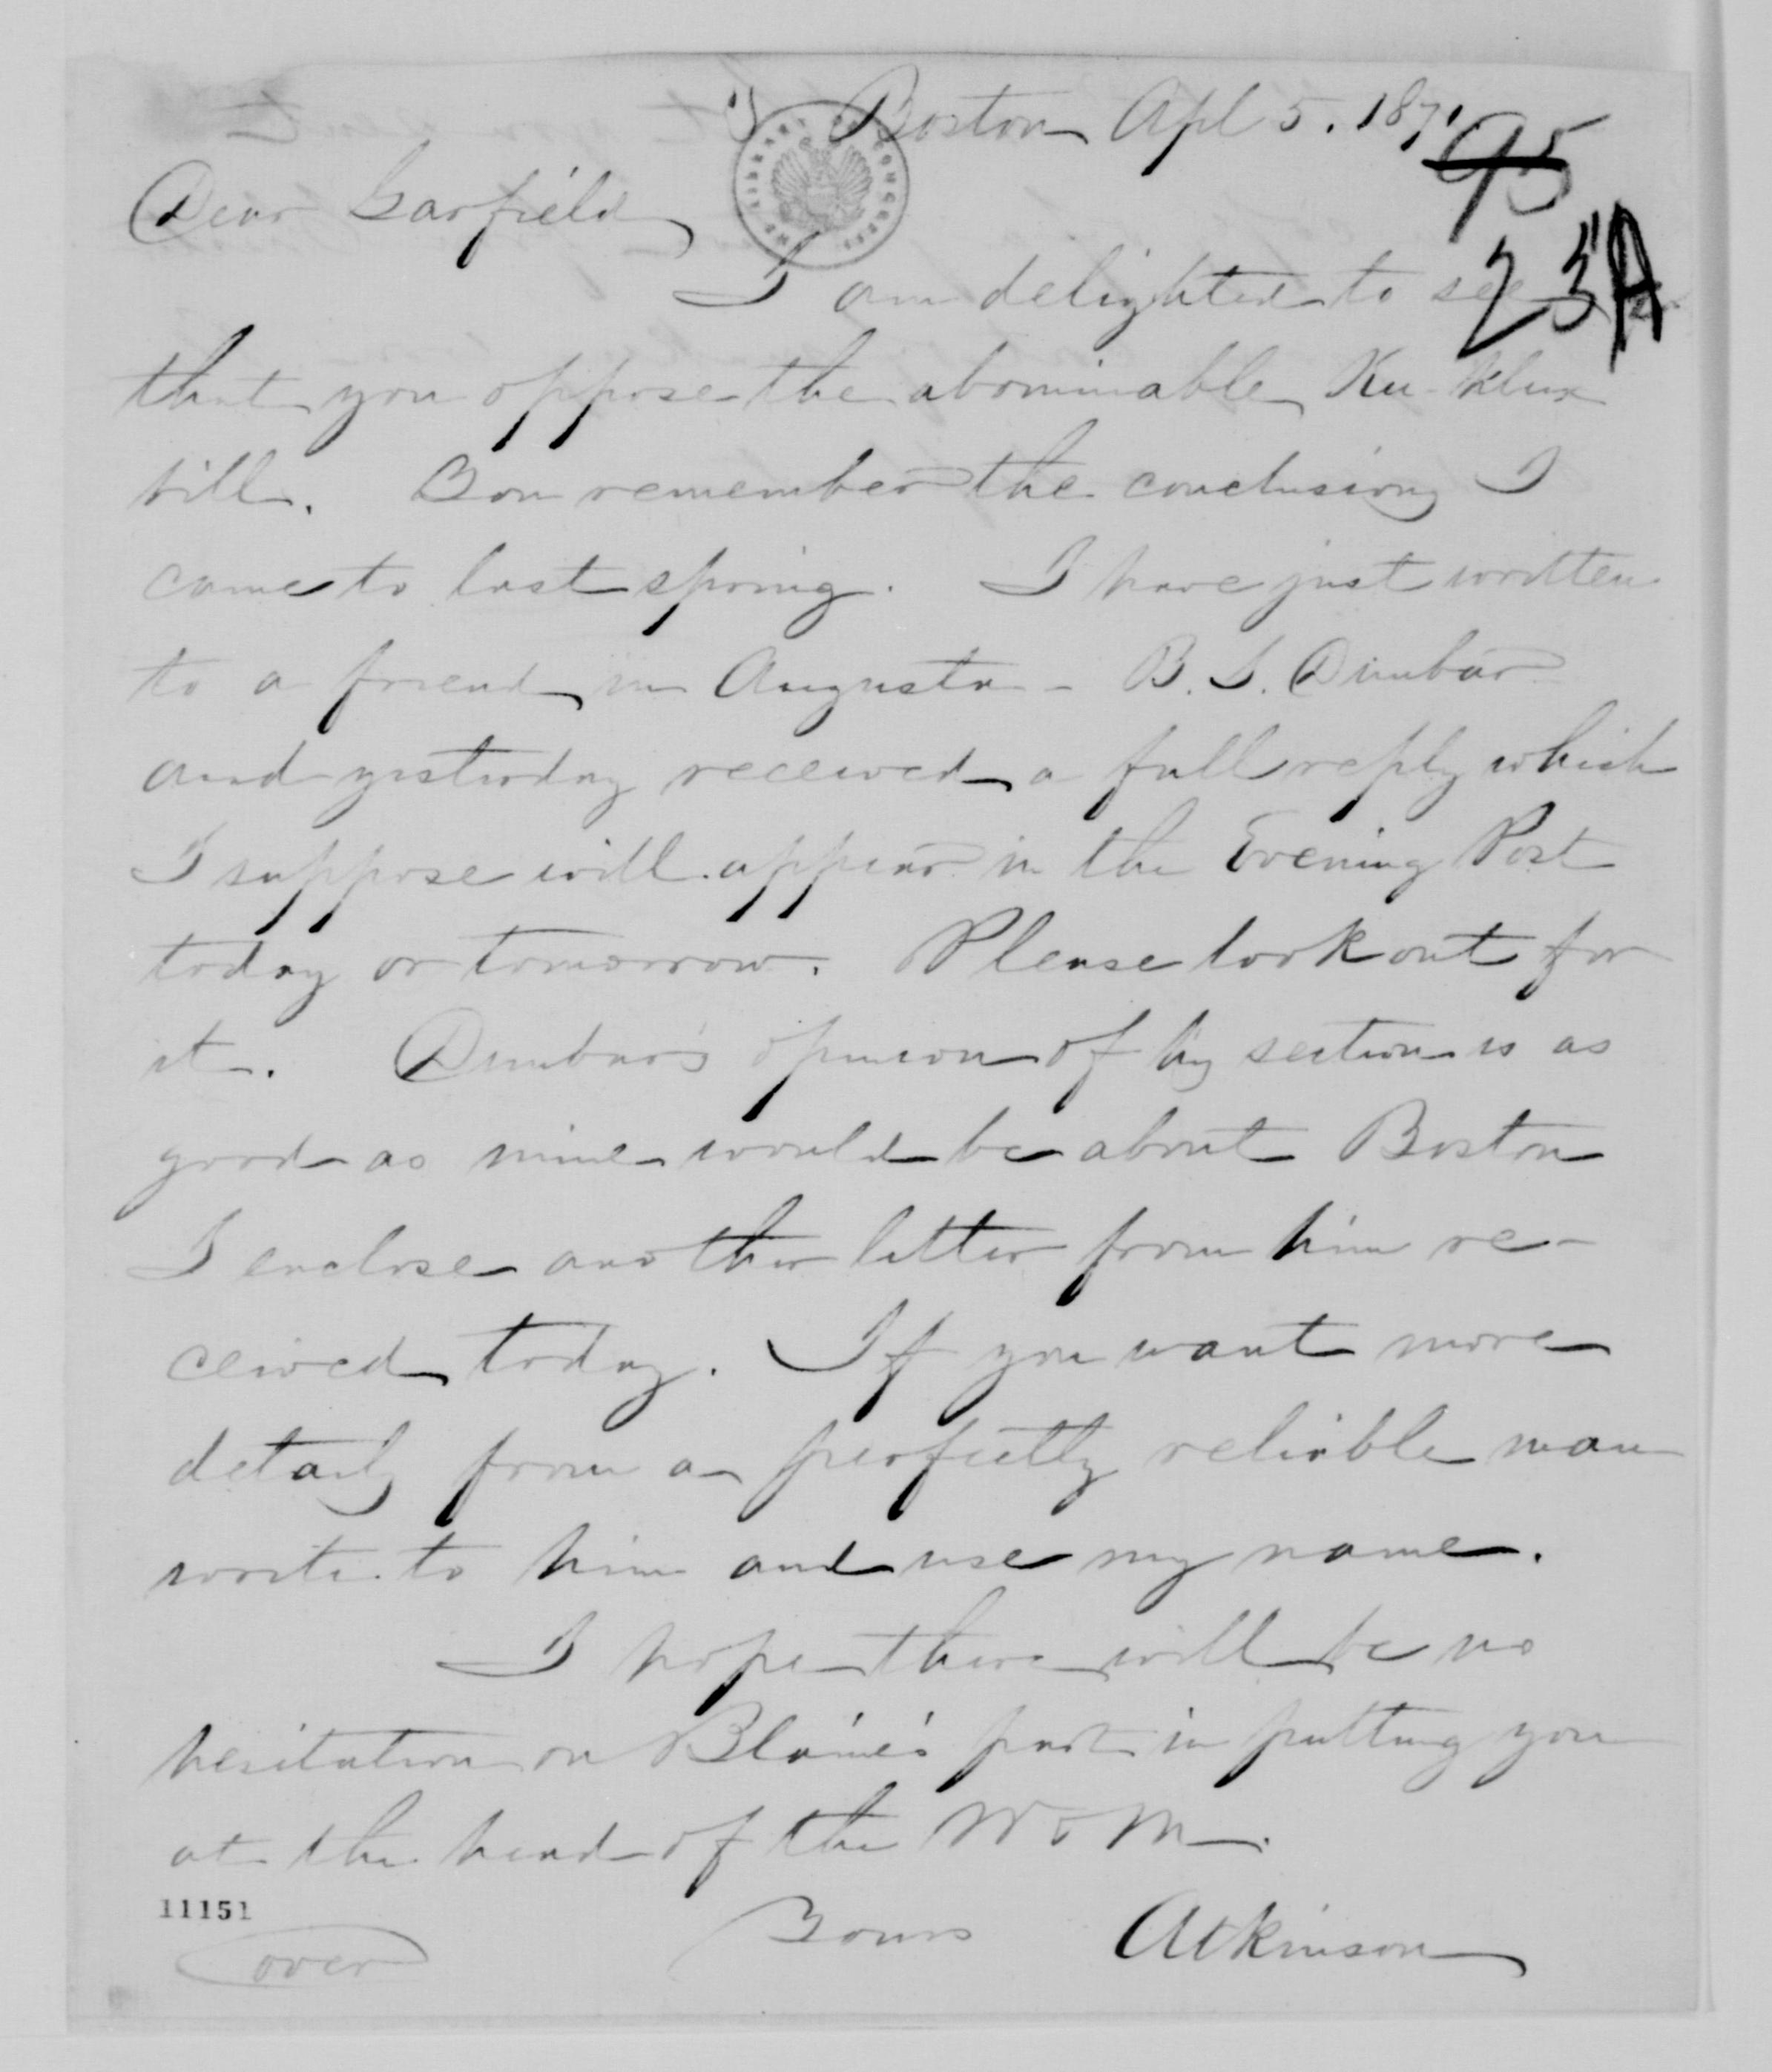 Boston Apl 5. 1871
95
Dear Garfield
23A
I am delighted to see
that you oppose the abominable Ku-Klux
bill. You remember the conclusions I
came to last spring. I have just written
to a friend in Augusta - B. S. Dunbar
and yesterday received a full reply which
I suppose will appear in the Evening Post
today or tomorrow. Please look out for
it. Dunbar's opinion of his section is as
good as mine would be about Boston
I enclose another letter from him re-
ceived today. If you want more
details from a perfectly reliable man
write to him and use my name.
I hope there will be no
hesitation on Blaine's part in putting you
at the head of the W & M.
11151
Yours Atkinson
over